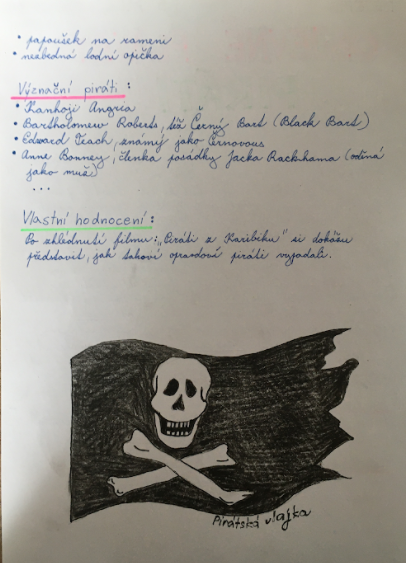 • papoušek na rameni
• nezbedná lodní opička
Význační piráti:
• Kanhoji Angria
• Bartholomew Roberts, též Černý Bart (Black Bart)
• Edward Teach, známý jako Černovous
• Anne Bonney, členka posádky Jacka Rackhama (oděná
jako muž)
...
Vlastní hodnocení:
Po zhlédnutí filmu: „Piráti z Karibiku" si dokážu
představit, jak takoví opravdoví piráti vypadali.
Pirátská vlajka